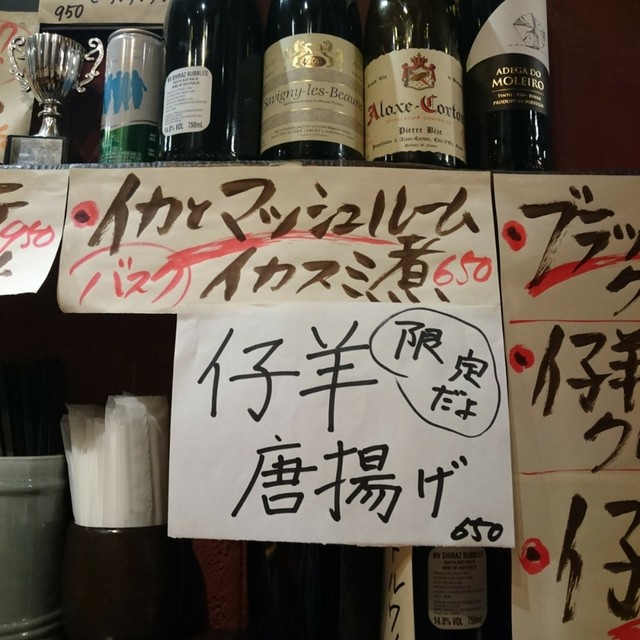 950
NV SHIRAZ BUBBLES
14.0% VOL 750mL
Savigny-les-Beaune
Aloxe-Corton
Pierre Bizt
ADEGA DO
MOLEIRO
950
イカとマッシュルーム
バスク イカスミ煮 650
仔羊
唐揚げ
限定だよ
650
ブラッ
ク
仔羊
ク
仔
NV SHIRAZ BUBBLES
14.0% VOL 750mL